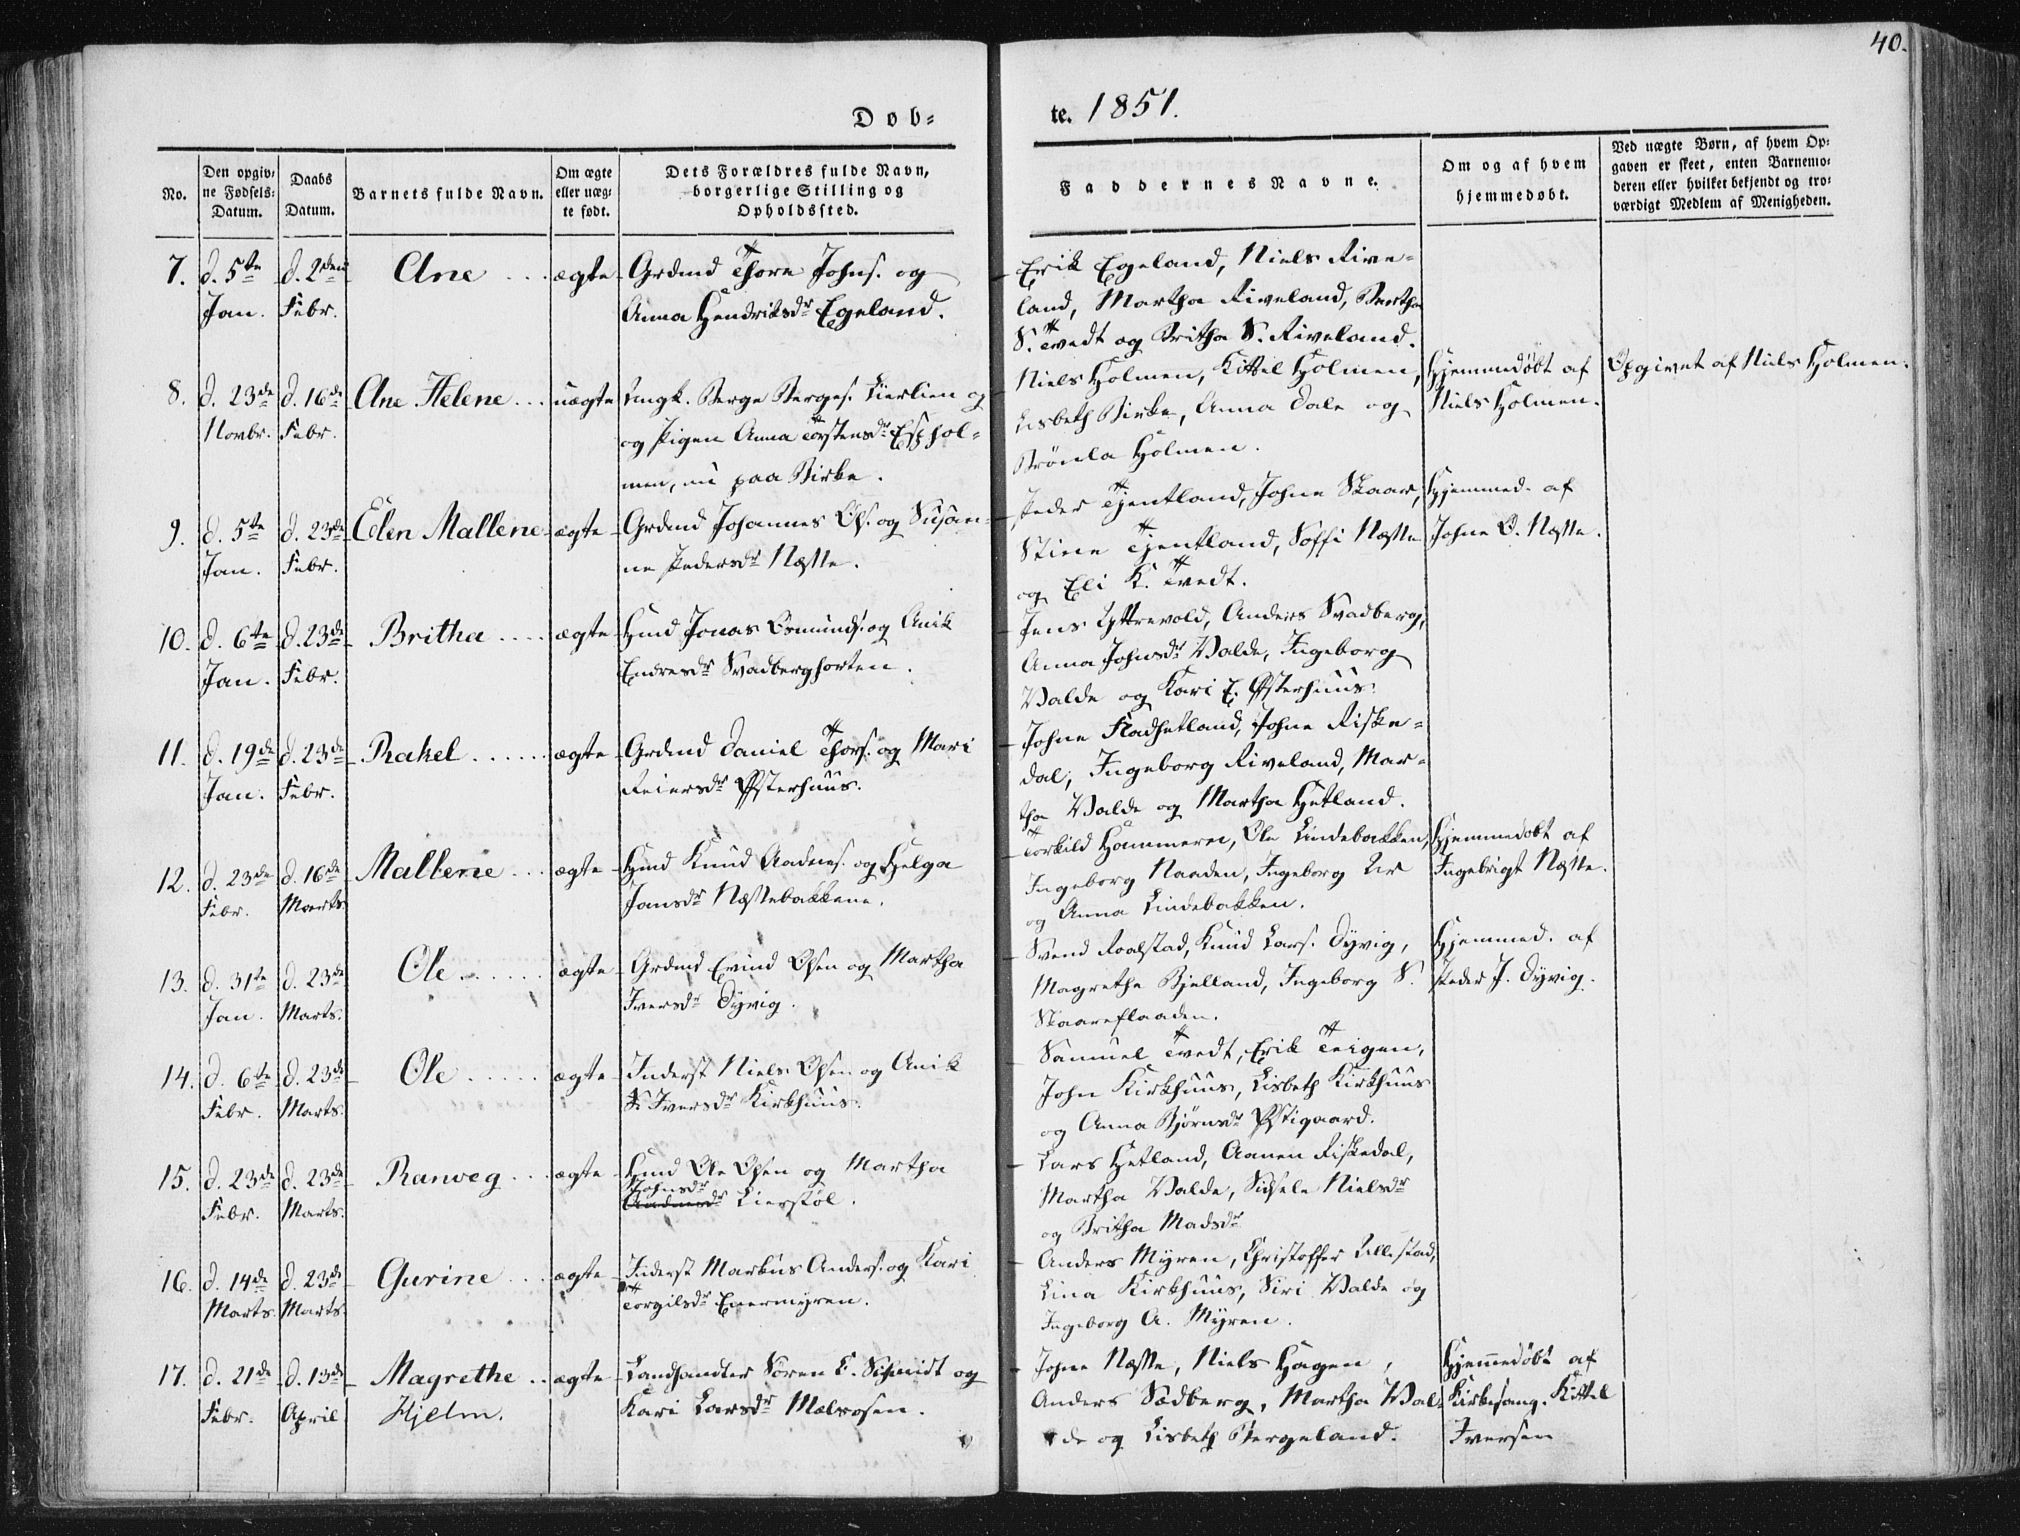 40.
Døb-
te. 1851.
No.
Den opgiv-
ne Fødsels-
Datum.
Daabs
Datum.
Barnets fulde Navn.
Om ægte
eller uæg-
te født.
Dets Forældres fulde Navn,
borgerlige Stilling og
Opholdssted.
Faddernes Navne.
Om og af hvem
hjemmedøbt.
Ved uægte Børn, af hvem Op-
gaven er skeet, enten Barnemo-
deren eller hvilket bekjendt og tro-
værdigt Medlem af Menigheden.
7. d. 5te Jan. d. 2den Febr. Ane ... ægte
Grdmd Thore Johns. og
Anna Hendriksdr Egeland.
Erik Egeland, Niels Rive-
land, Martha Riveland, Bertha
S. Tvedt og Britha S. Riveland.
8. d. 23de Novbr. d. 16de Febr. Ane Helene ... uægte
Ungk. Berge Berges. Lierlien og
og Pigen Anna Torstensdr Esphol-
men, nu paa Birke.
Niels Holmen, Kittel Holmen,
Lisbeth Birke, Anna Dale og
Brönla Holmen.
Hjemmedøbt af
Niels Holmen.
Opgivet af Niels Holmen.
9. d. 5te Jan. d. 23de Febr. Elen Mallene ægte
Grdmd Johannes Ols. og Susan-
ne Pedersdr Næsse.
Peder Tjentland, Johne Skaar,
Stine Tjentland, Soffi Næsse
og Eli K. Tvedt.
Hjemmed. af
Johne O. Næsse.
10. d. 6te Jan. d. 23de Febr. Britha .... ægte
Hmd Jonas Osmunds. og Anik
Endresdr Svadberghorten.
Jens Yttrevold, Anders Svadberg,
Anna Johnsdr Valde, Ingeborg
Valde og Kari E. Østerhuus.
11. d. 19de Jan. d. 23de Febr. Rakel ...... ægte
Grdmd Daniel Thors. og Mari
Reiersdr Østerhuus.
Johne Fladhetland, Johne Riske-
dal, Ingeborg Riveland, Mar-
tha Valde og Martha Hetland.
12. d. 23de Febr. d. 16de Marts Mallene ... ægte
Hmd Knud Aadnes. og Helga
Jansdr Næssebakkene.
Torkild Hammeren, Ole Lindebakken,
Ingeborg Naaden, Ingeborg Ur
og Anna Lindebakken.
Hjemmedøbt af
Ingebrigt Næsse.
13. d. 31te Jan. d. 23de Marts. Ole ...... ægte
Grdmd Evind Olsen og Martha
Iversdr Dyvig.
Svend Roalstad, Knud Lars. Dyvig,
Magrethe Bjelland, Ingeborg S.
Skaareflaaden.
Hjemmed. af
Peder J. Dyvig.
14. d. 6te Febr. d. 23de Marts. Ole ..... ægte
Inderst Niels Olsen og Anik
Iversdr Kirkhuus.
Samuel Tvedt, Erik Teigen,
John Kirkhuus, Lisbeth Kirkhuus
og Anna Bjørnsdr Østigaard.
15. d. 23de Febr. d. 23de Marts. Ranveg ... ægte
Hmd Ole Olsen og Martha
Johnsdr
Aadnesdr Lierstøl.
Lars Hetland, Aanen Riskedal,
Martha Valde, Sissele Nielsdr
og Britha Madsdr
16. d. 14de Marts. d. 23de Marts. Gurine ... ægte
Inderst Markus Anders. og Kari
Torgilsdr Enermyren.
Anders Myren, Christoffer Ullestad,
Lina Kirkhuus, Siri Valde og
Ingeborg A. Myren.
17. d. 21de Febr. d. 13de April Magrethe Hjelm. ægte
Landhandler Sören E. Schmidt og
Kari Larsdr Mælsosen.
Johne Næsse, Niels Hagen,
Anders Sædberg, Martha Val-
de og Lisbeth Bergeland.
Hjemmedøbt af
Kirkesang. Kittel
Iversen